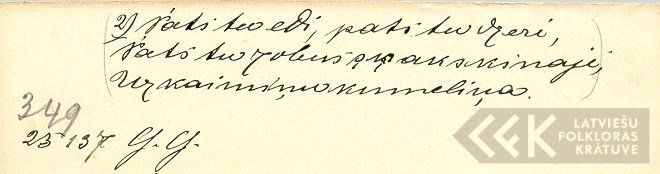 2) Pats tu ēdi, pats tu dzeri,
Pats tu zobus skakskinaji,
Uz kaimiņu kumeliņa.
349
25 137 G. G.
LATVIEŠU
FOLKLORAS
KRĀTUVE